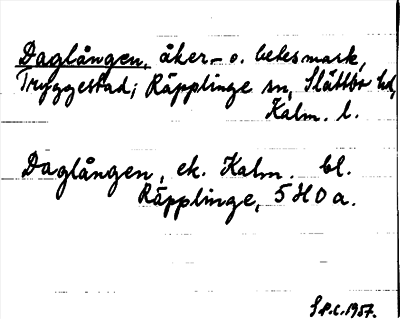 Daglången, åker- o. betesmark,
Tryggestad; Räpplinge sn, Slättbo hd,
Kalm. l.
Daglången, ek. Kalm. bl.
Räpplinge, 5 H 0 a.
S P.C. 1957.